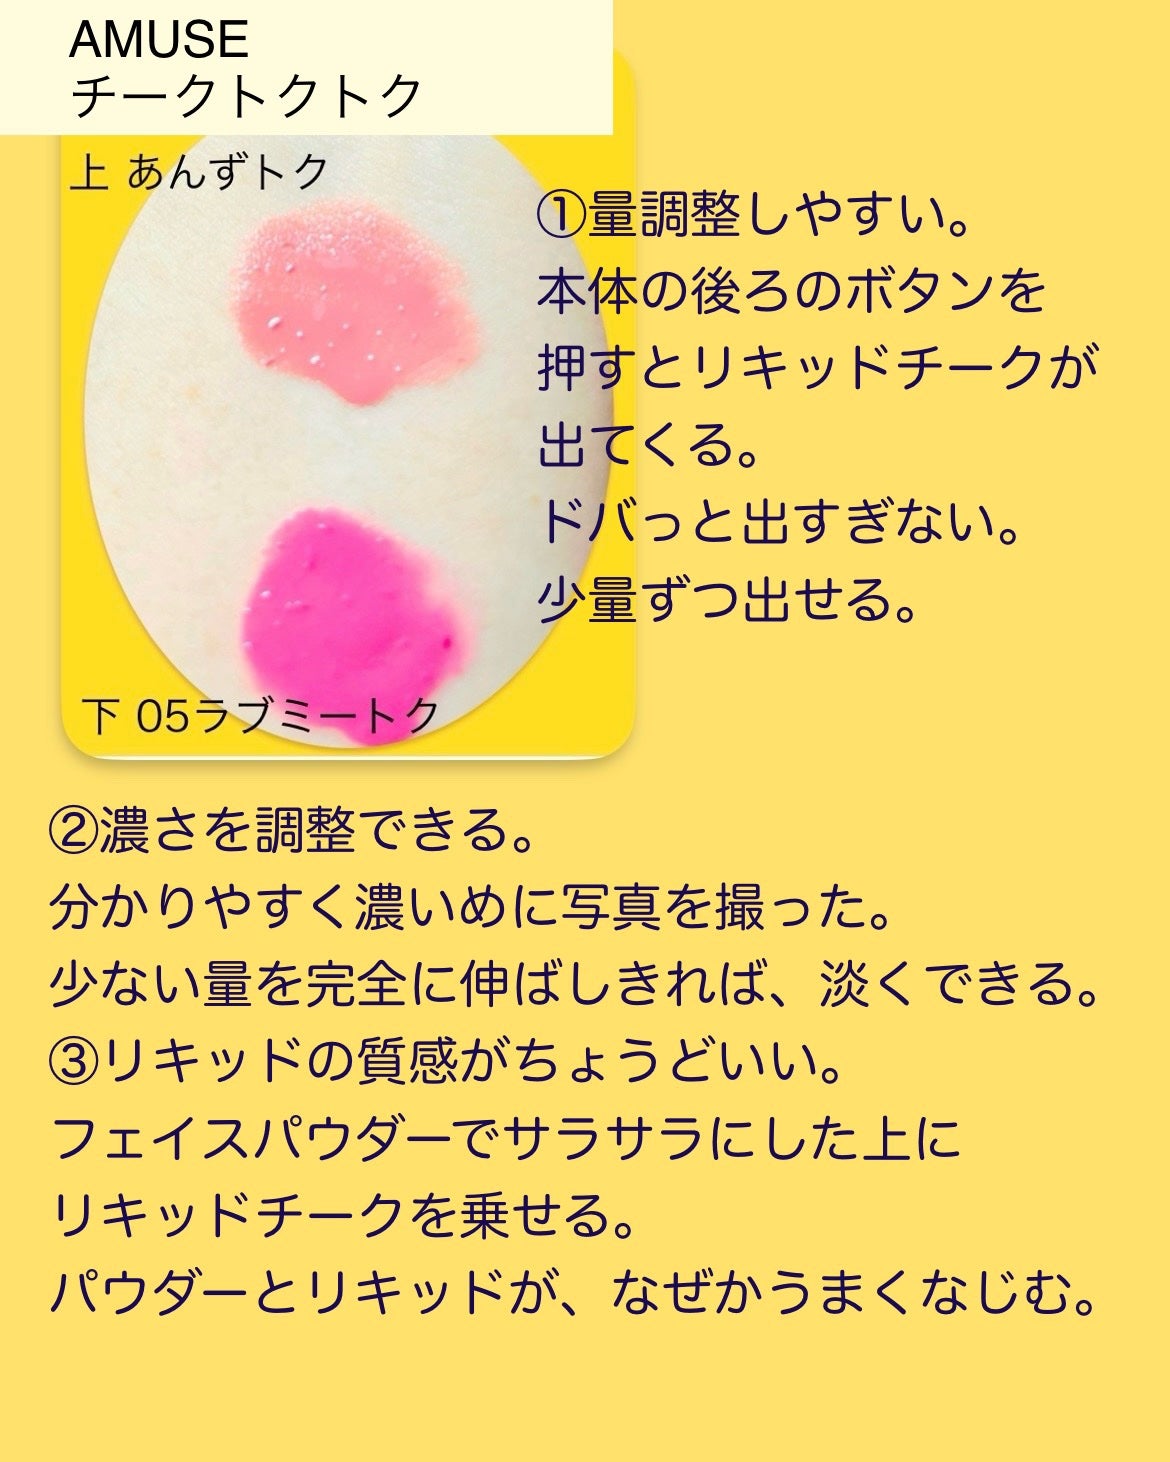 AMUSE
チークトクトク
上 あんずトク
①量調整しやすい。
本体の後ろのボタンを
押すとリキッドチークが
出てくる。
ドバっと出すぎない。
少量ずつ出せる。
下 05ラブミートク
②濃さを調整できる。
分かりやすく濃いめに写真を撮った。
少ない量を完全に伸ばしきれば、淡くできる。
③リキッドの質感がちょうどいい。
フェイスパウダーでサラサラにした上に
リキッドチークを乗せる。
パウダーとリキッドが、なぜかうまくなじむ。